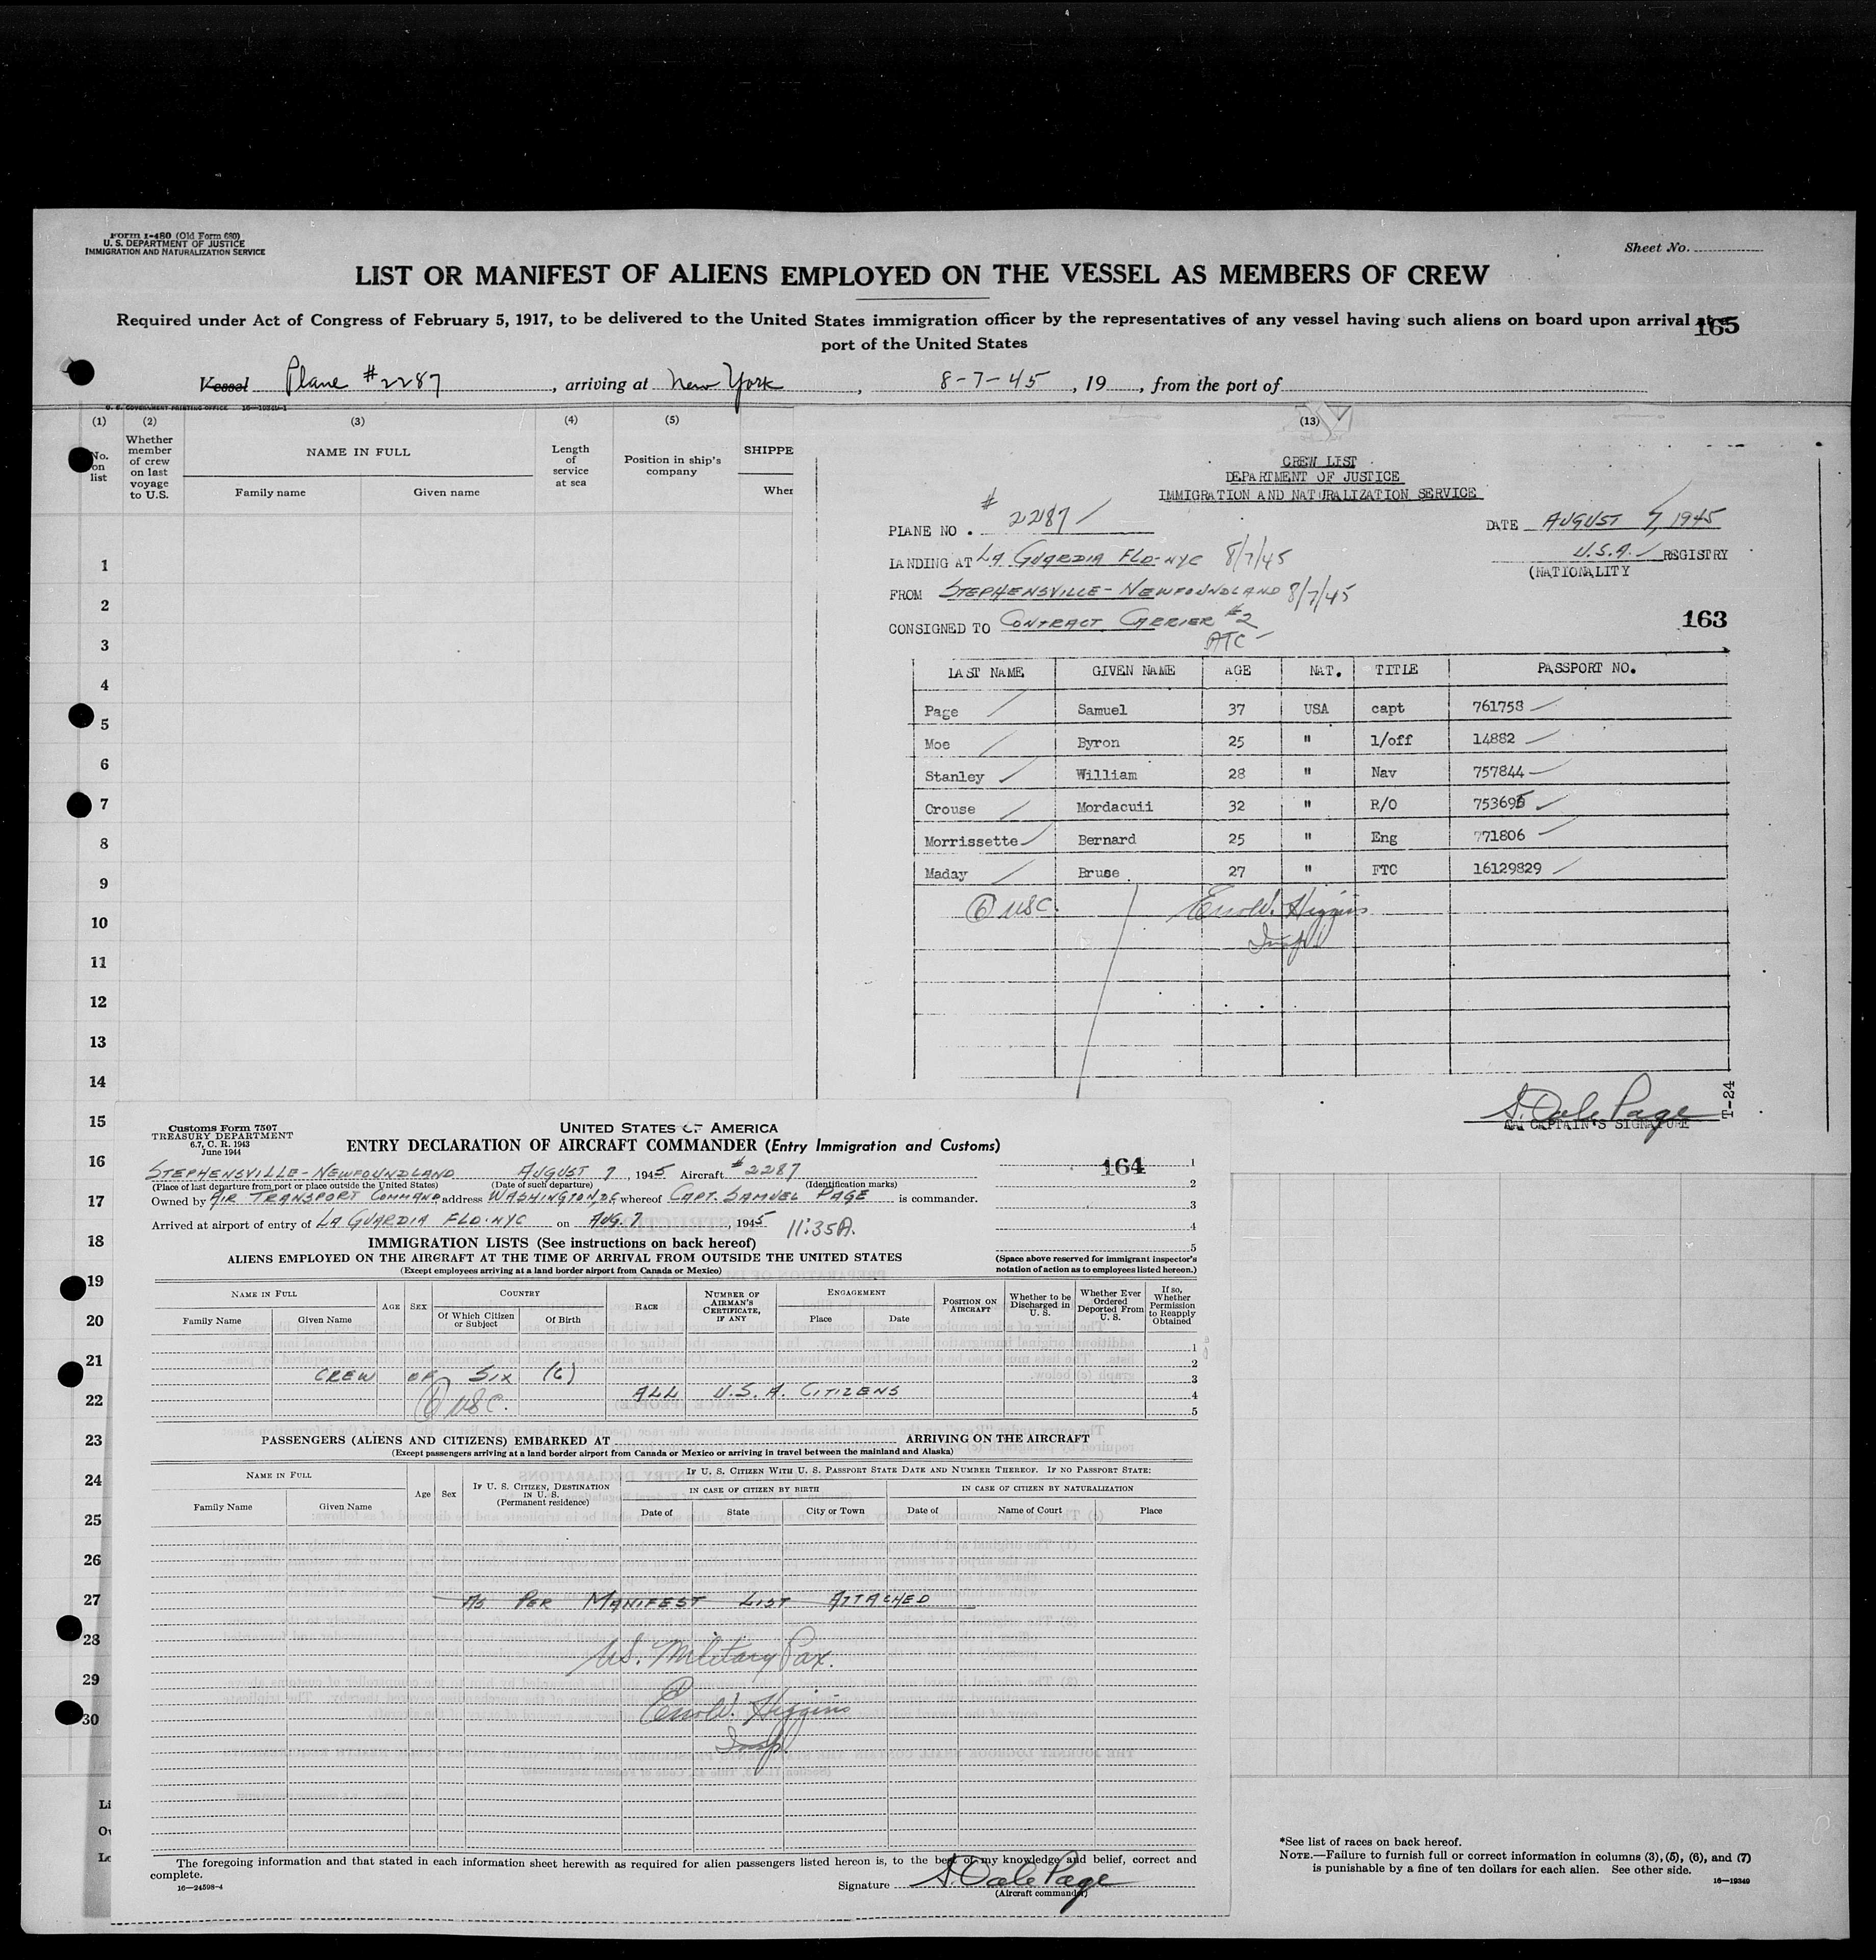 Form I-480 (Old Form 680)
U. S. DEPARTMENT OF JUSTICE
IMMIGRATION AND NATURALIZATION SERVICE
Sheet No.
LIST OR MANIFEST OF ALIENS EMPLOYED ON THE VESSEL AS MEMBERS OF CREW
Required under Act of Congress of February 5, 1917, to be delivered to the United States immigration officer by the representatives of any vessel having such aliens on board upon arrival at a
port of the United States
165
Vessel Plane #2287, arriving at New York, 8-7-45, 19, from the port of
U. S. GOVERNMENT PRINTING OFFICE 16-19349-1
(1) (2) (3) (4) (5) (13)
No. on list
Whether member of crew on last voyage to U.S.
NAME IN FULL
Family name Given name
Length of service at sea
Position in ship's company
SHIPPE
Wher
1
2
3
4
5
6
7
8
9
10
11
12
13
14
15
16
17
18
19
20
21
22
23
24
25
26
27
28
29
30
Li
Ov
Lo
CREW LIST
DEPARTMENT OF JUSTICE
IMMIGRATION AND NATURALIZATION SERVICE
PLANE NO. # 2287 DATE AUGUST 7, 1945
LANDING AT LA GUARDIA FLD-NYC 8/7/45 U.S.A. REGISTRY
(NATIONALITY
FROM STEPHENSVILLE-NEWFOUNDLAND 8/7/45
163
CONSIGNED TO CONTRACT CARRIER #2
ATC
LAST NAME GIVEN NAME AGE NAT. TITLE PASSPORT NO.
Page Samuel 37 USA capt 761758
Moe Byron 25 " 1/off 14882
Stanley William 28 " Nav 757844
Crouse Mordacuii 32 " R/O 753695
Morrissette Bernard 25 " Eng 771806
Maday Bruse 27 " FTC 16129829
(6) USC. Eno W. Higgins
Insp.
S. Dale Page
CAPTAIN'S SIGNATURE
T-24
Customs Form 7507
TREASURY DEPARTMENT
6.7, C. R. 1943
June 1944
UNITED STATES OF AMERICA
ENTRY DECLARATION OF AIRCRAFT COMMANDER (Entry Immigration and Customs)
164
1
2
3
4
5
STEPHENSVILLE-NEWFOUNDLAND AUGUST 7, 1945 Aircraft #2287
(Place of last departure from port or place outside the United States) (Date of such departure) (Identification marks)
Owned by AIR TRANSPORT COMMAND, address WASHINGTON, DC whereof CAPT. SAMUEL PAGE is commander.
Arrived at airport of entry of LA GUARDIA FLD-NYC on AUG. 7, 1945 11:35A.
IMMIGRATION LISTS (See instructions on back hereof)
ALIENS EMPLOYED ON THE AIRCRAFT AT THE TIME OF ARRIVAL FROM OUTSIDE THE UNITED STATES
(Except employees arriving at a land border airport from Canada or Mexico)
(Space above reserved for immigrant inspector's notation of action as to employees listed hereon.)
NAME IN FULL
Family Name Given Name
AGE SEX
COUNTRY
Of Which Citizen or Subject Of Birth
RACE
NUMBER OF AIRMAN'S CERTIFICATE, IF ANY
ENGAGEMENT
Place Date
POSITION ON AIRCRAFT
Whether to be Discharged in U. S.
Whether Ever Ordered Deported From U. S.
If so, Whether Permission to Reapply Obtained
1
2
3
4
5
CREW OF SIX (6)
ALL U.S.A. CITIZENS
(6) USC.
PASSENGERS (ALIENS AND CITIZENS) EMBARKED AT ARRIVING ON THE AIRCRAFT
(Except passengers arriving at a land border airport from Canada or Mexico or arriving in travel between the mainland and Alaska)
NAME IN FULL
Family Name Given Name
Age Sex
IF U. S. CITIZEN, DESTINATION IN U. S.
(Permanent residence)
IF U. S. CITIZEN WITH U. S. PASSPORT STATE DATE AND NUMBER THEREOF. IF NO PASSPORT STATE:
IN CASE OF CITIZEN BY BIRTH IN CASE OF CITIZEN BY NATURALIZATION
Date of State City or Town Date of Name of Court Place
AS PER MANIFEST LIST ATTACHED
US. Military Pax.
Eno W. Higgins
Insp.
The foregoing information and that stated in each information sheet herewith as required for alien passengers listed hereon is, to the best of my knowledge and belief, correct and
complete.
16-24598-4
Signature S. Dale Page
(Aircraft commander)
*See list of races on back hereof.
NOTE.—Failure to furnish full or correct information in columns (3), (5), (6), and (7)
is punishable by a fine of ten dollars for each alien. See other side.
16-19349